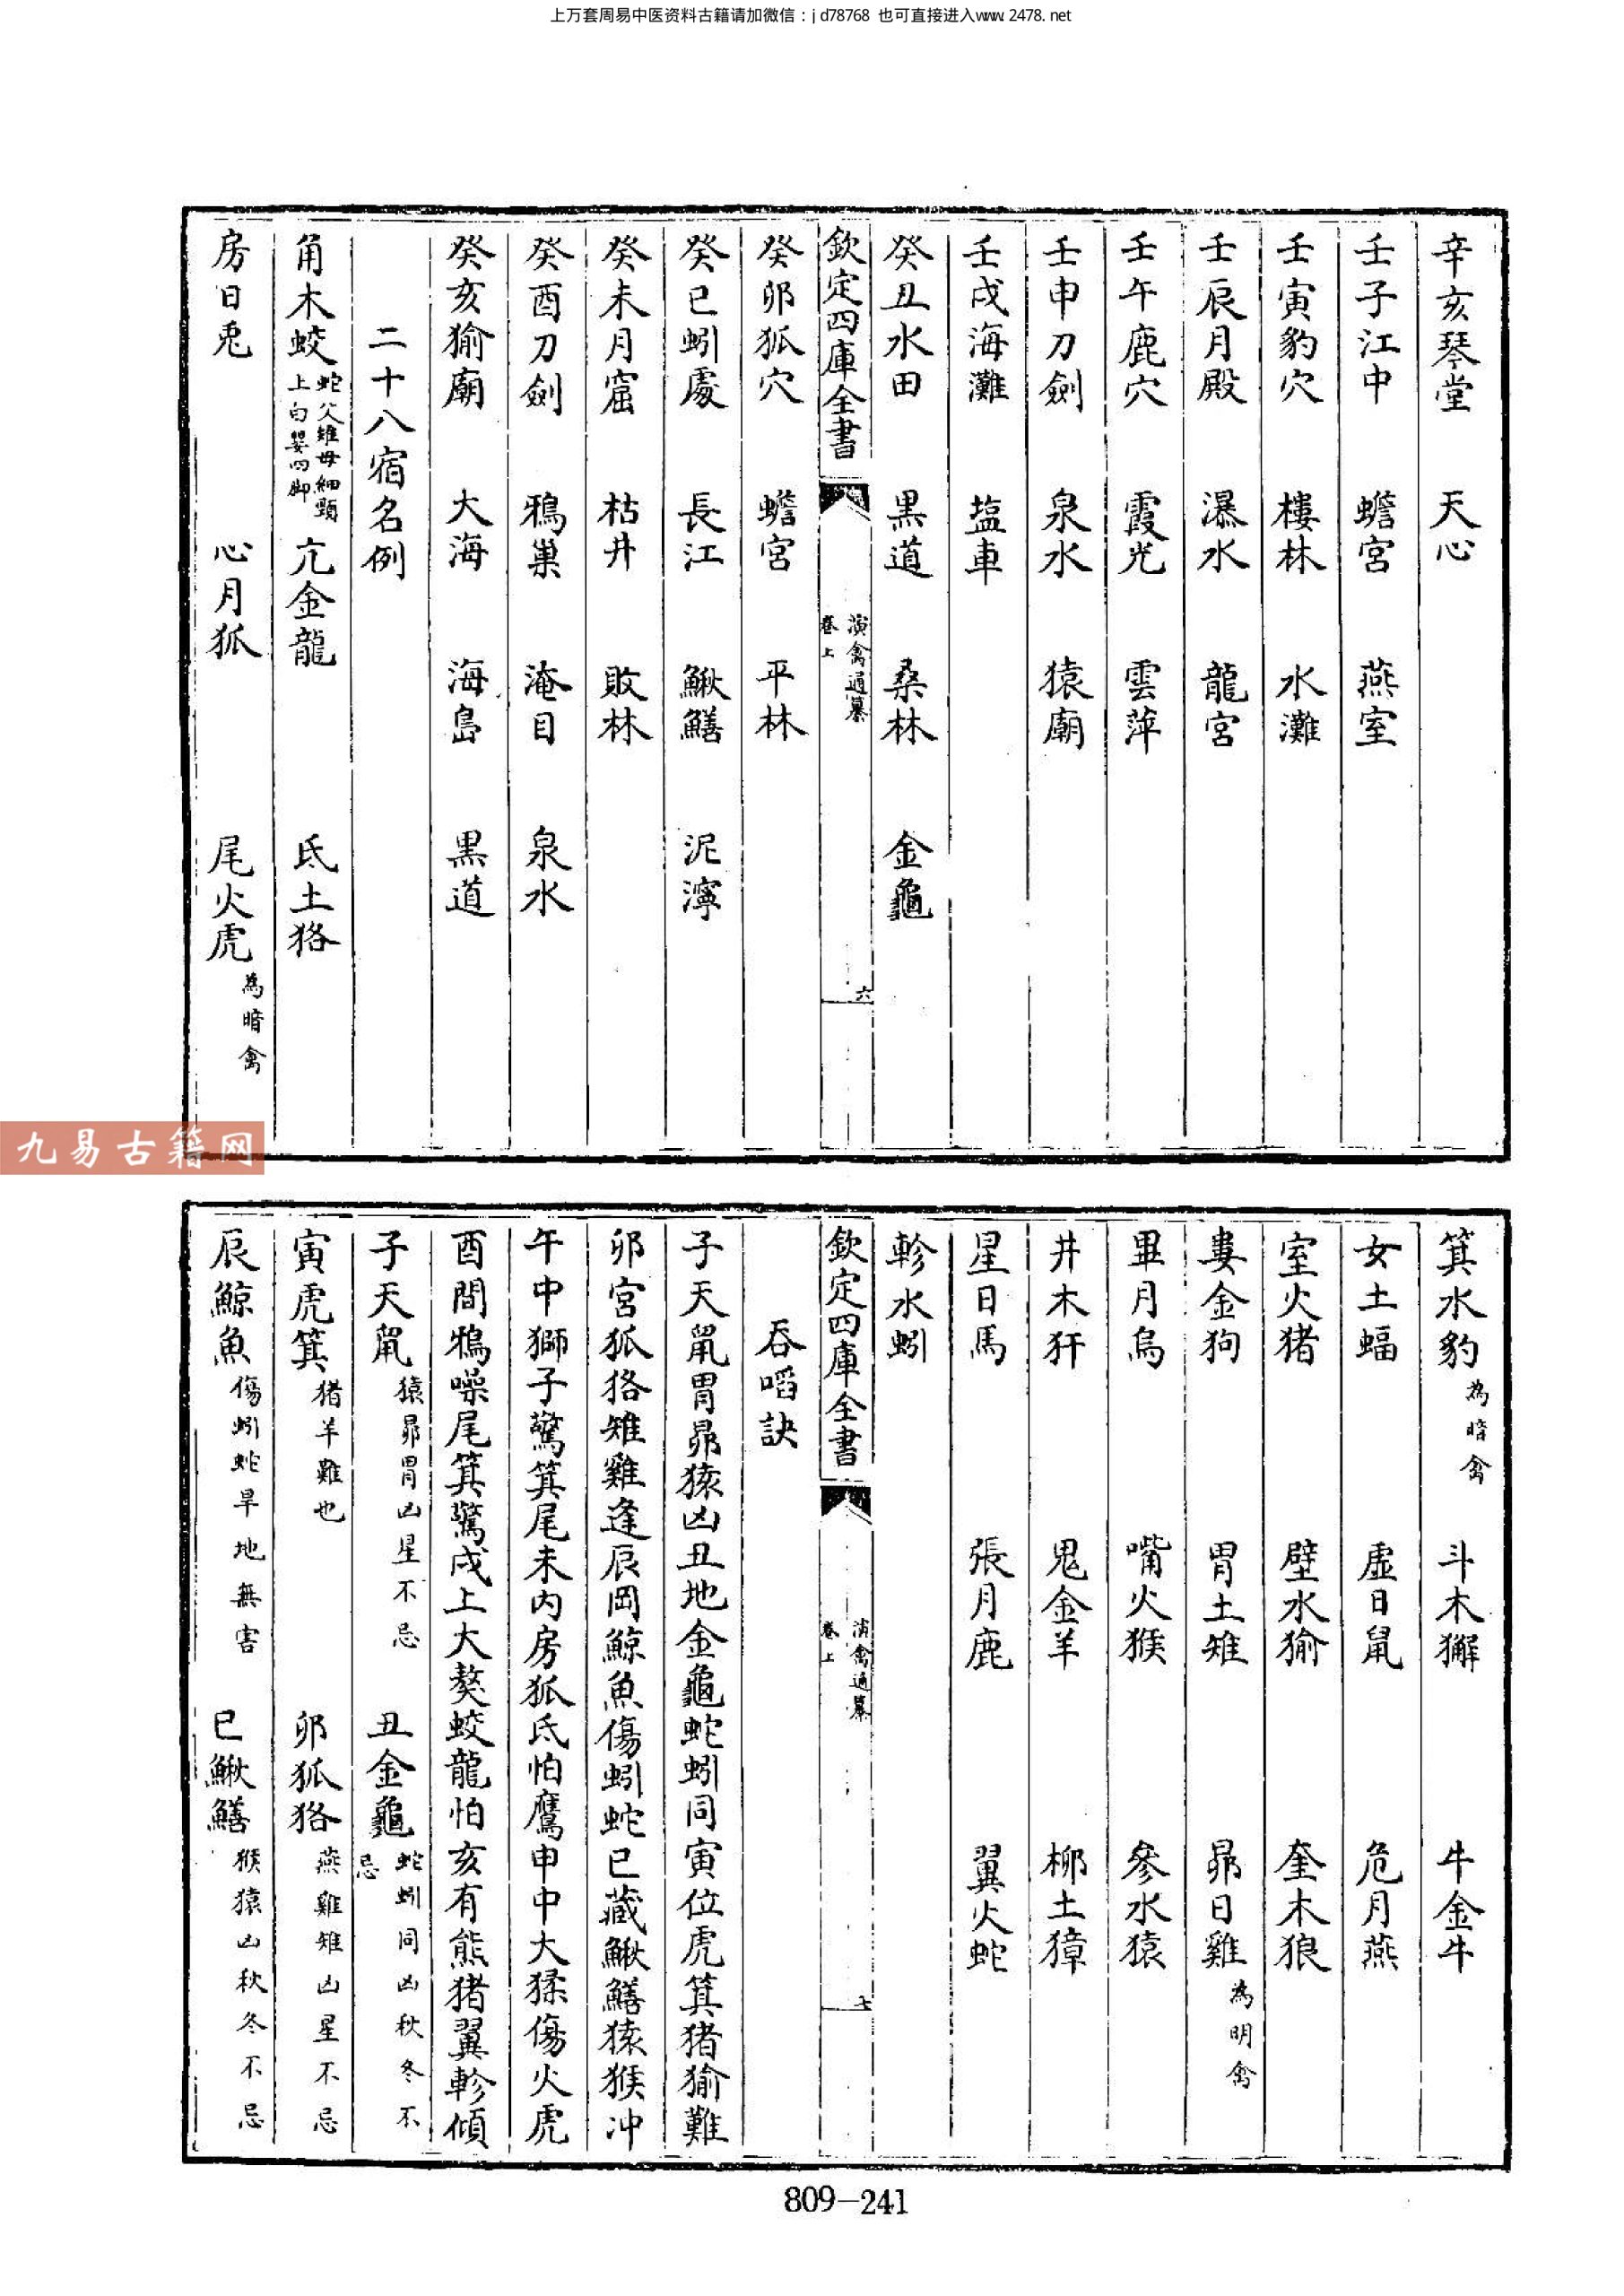 上万套周易中医资料古籍请加微信：jd78768 也可直接进入www.2478.net
辛亥琴堂 天心
壬子江中 蟾宮 燕室
壬寅豹穴 樓林 水灘
壬辰月殿 瀑水 龍宮
壬午鹿穴 霞光 雲萍
壬申刀劍 泉水 猿廟
壬戌海灘 塩車
癸丑水田 黒道 桑林 金龜
欽定四庫全書 演禽通纂 卷上 六
癸卯狐穴 蟾宮 平林
癸巳蚓處 長江 鰍鱔 泥濘
癸未月窟 枯井 敗林
癸酉刀劍 鴉巢 淹目 泉水
癸亥㺄廟 大海 海島 黒道
二十八宿名例
角木蛟 蛇父雉母細頸上白嬰四脚 亢金龍 氐土狢
房日兎 心月狐 尾火虎 為暗禽
九易古籍网
箕水豹 為暗禽 斗木獬 牛金牛
女土蝠 虛日鼠 危月燕
室火猪 壁水㺄 奎木狼
婁金狗 胃土雉 昴日雞 為明禽
畢月烏 嘴火猴 參水猿
井木犴 鬼金羊 柳土獐
星日馬 張月鹿 翼火蛇
軫水蚓
欽定四庫全書 演禽通纂 卷上 七
吞啗訣
子天鼠胃昴猿凶丑地金龜蛇蚓同寅位虎箕猪㺄難
卯宮狐狢雉雞逢辰岡鯨魚傷蚓蛇巳藏鰍鱔猿猴冲
午中獅子驚箕尾未内房狐氐怕鷹申中大猱傷火虎
酉間鴉噪尾箕驚戌上大獒蛟龍怕亥有熊猪翼軫傾
子天鼠 猿昴胃凶星不忌 丑金龜 蛇蚓同凶秋冬不忌
寅虎箕 猪羊難也 卯狐狢 燕雞雉凶星不忌
辰鯨魚 傷蚓蛇旱地無害 巳鰍鱔 猴猿凶秋冬不忌
809-241